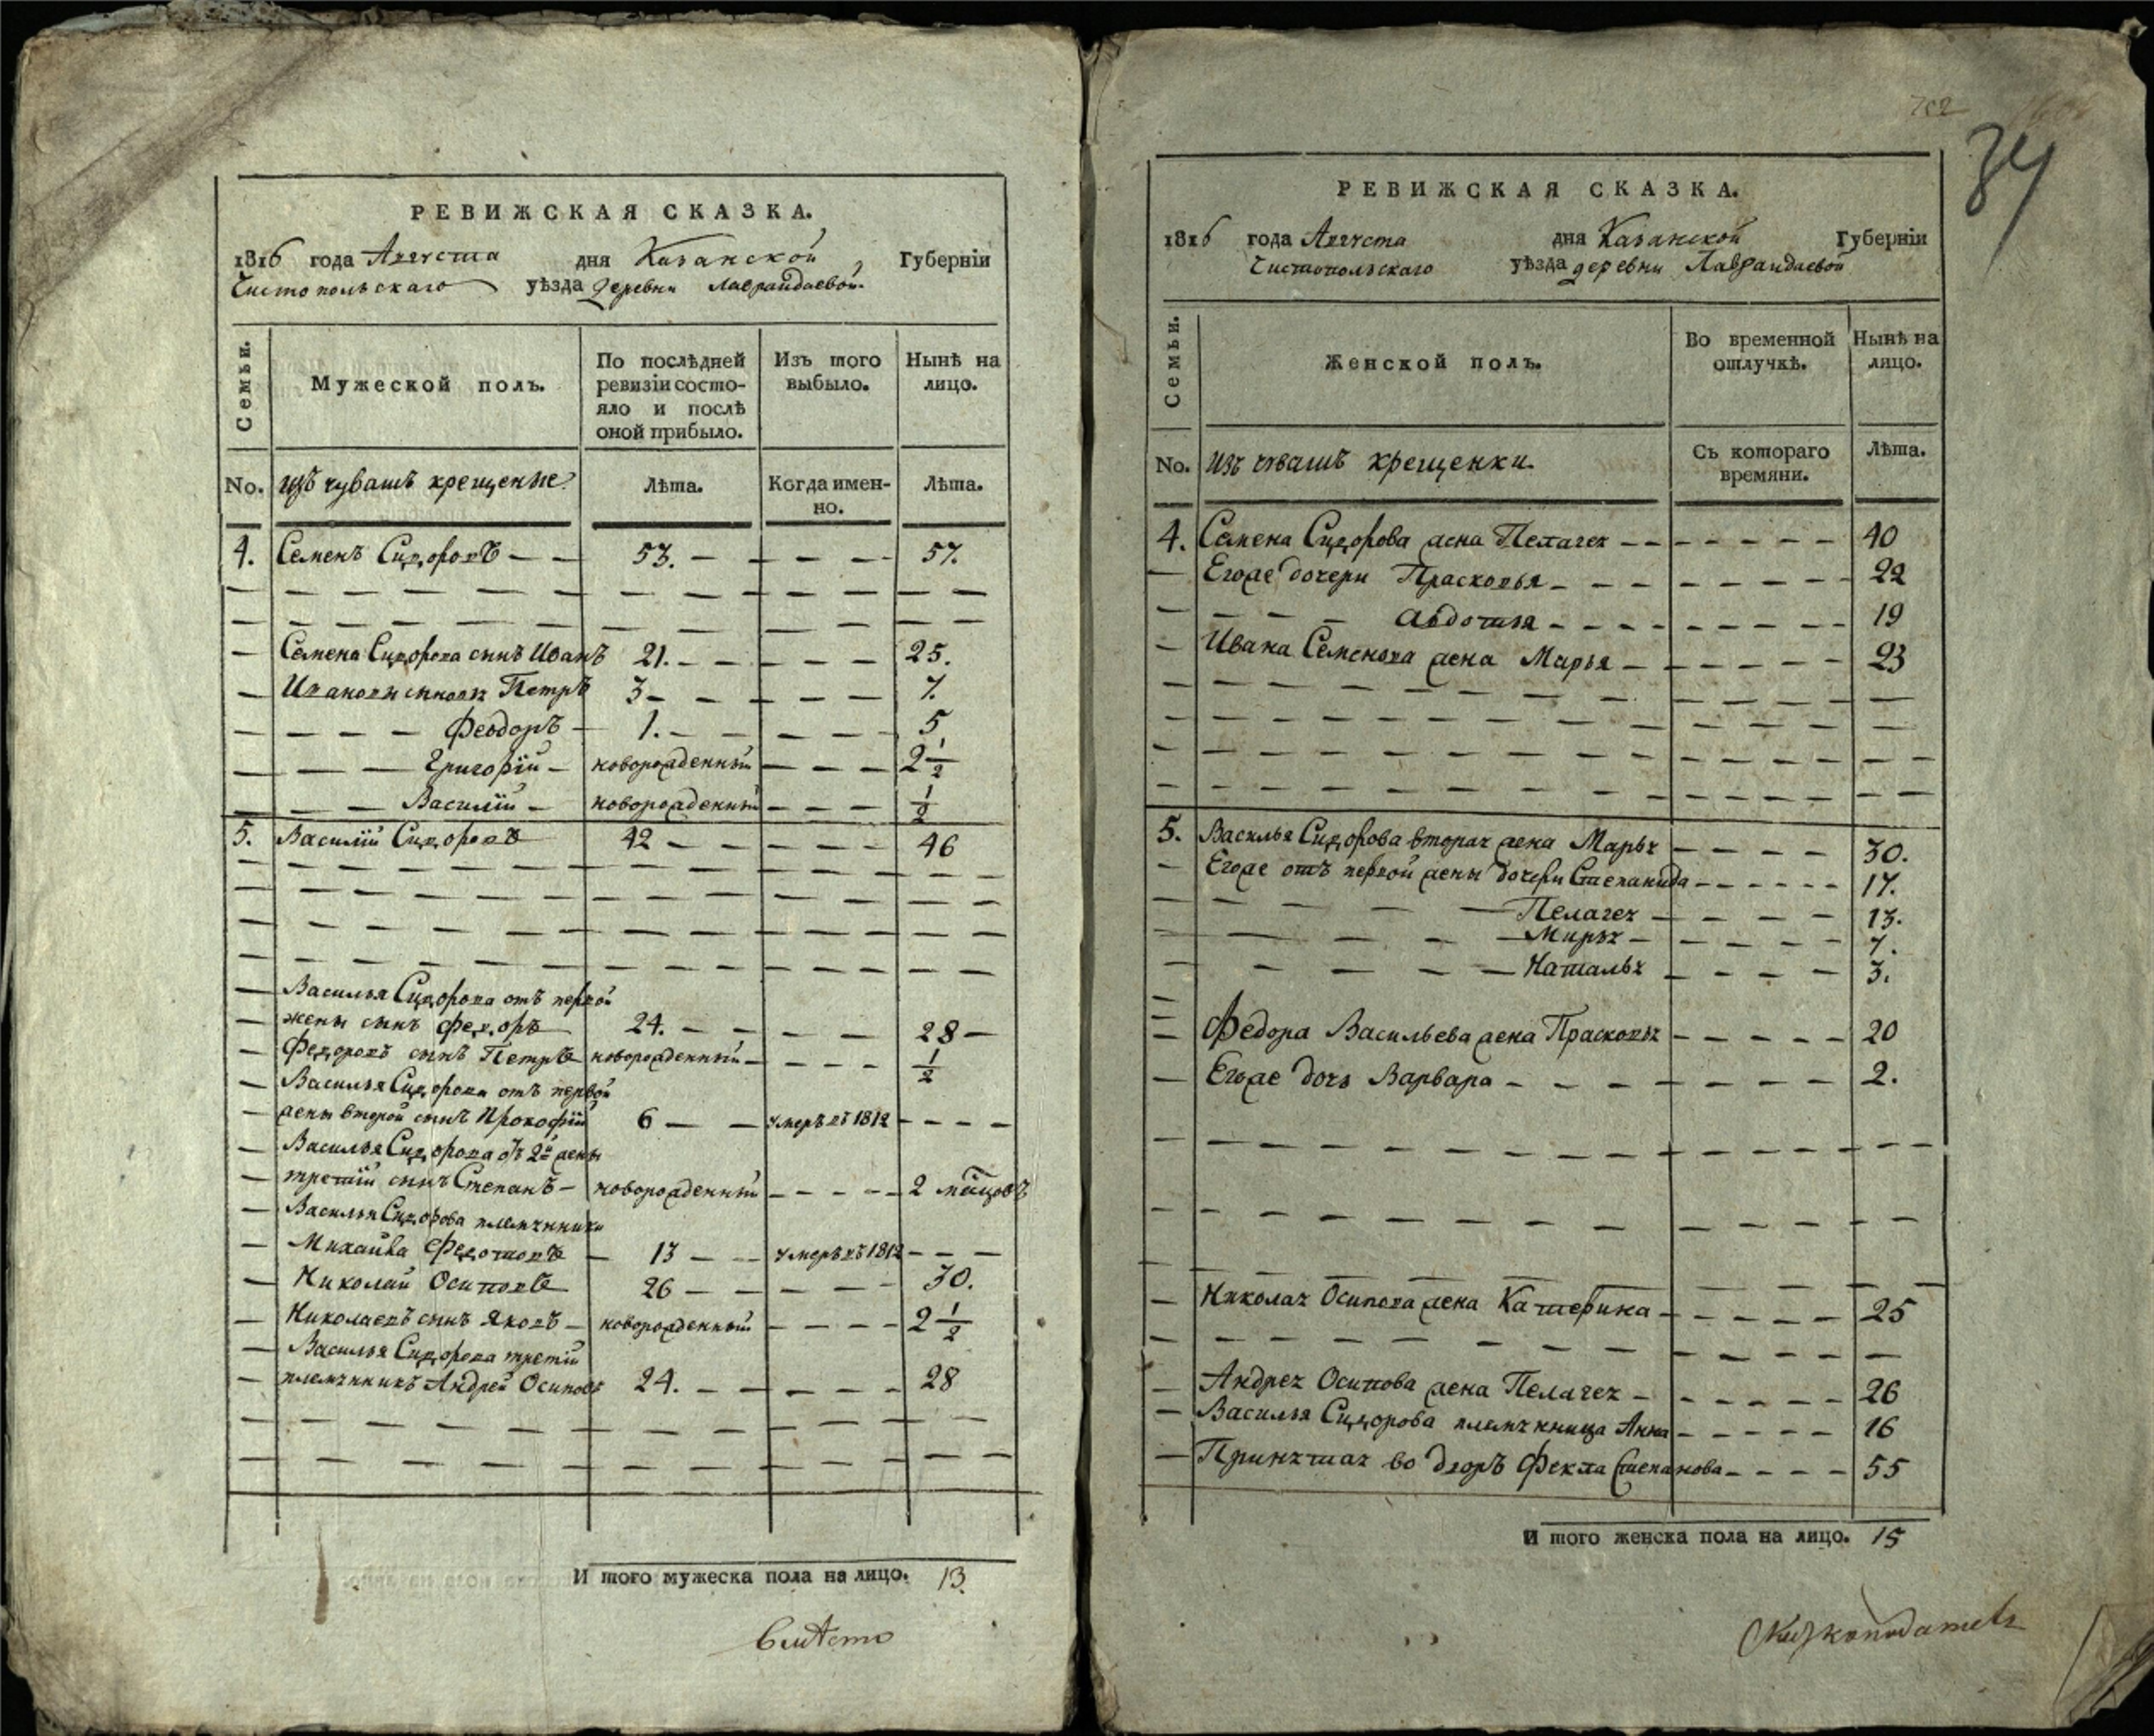 РЕВИЖСКАЯ СКАЗКА.
1816 года Августа дня Казанской Губернїи
Чистопольскаго уѣзда деревни Лавраидаевой.
Семьи. Мужеской полъ. По послѣдней ревизїи состо-яло и послѣ оной прибыло. Изъ того выбыло. Нынѣ на лицо.
No. изъ чувашъ крещеные. Лѣта. Когда имен-но. Лѣта.
4. Семенъ Сидоровъ 53. 57.
Семена Сидорова сынъ Иванъ 21. 25.
Ивановы сыновья Петръ 3 7.
Феодоръ 1. 5
Григорїй новорожденный 2 1/2
Василїй новорожденный 1/2
5. Василїй Сидоровъ 42 46
Василья Сидорова отъ первой
жены сынъ Федоръ 24. 28
Федоровъ сынъ Петръ новорожденный 1/2
Василья Сидорова отъ первой
жены второй сынъ Прокофїй 6 умеръ въ 1812
Василья Сидорова отъ 2й жены
третїй сынъ Степанъ новорожденный 2 мѣсяцовъ
Василья Сидорова племянники
Михайла Федотовъ 13 умеръ въ 1812
Николай Осиповъ 26 30.
Николаевъ сынъ Яковъ новорожденный 2 1/2
Василья Сидорова третїй
племянникъ Андрей Осиповъ 24. 28
И того мужеска пола на лицо. 13.
вмѣсто
702
34
РЕВИЖСКАЯ СКАЗКА.
1816 года Августа дня Казанской Губернїи
Чистопольскаго уѣзда деревни Лавраидаевой
Семьи. Женской полъ. Во временной отлучкѣ. Нынѣ на лицо.
No. Изъ чувашъ крещенки. Съ котораго времяни. Лѣта.
4. Семена Сидорова жена Пелагея 40
Егоже дочери Прасковья 22
Авдотья 19
Ивана Семенова жена Марья 23
5. Василья Сидорова вторая жена Марья 30.
Егоже отъ первой жены дочери Степанида 17.
Пелагея 13.
Марья 7.
Наталья 3.
Федора Васильева жена Прасковья 20
Егоже дочь Варвара 2.
Николая Осипова жена Катерина 25
Андрея Осипова жена Пелагея 26
Василья Сидорова племянница Анна 16
Принятая во дворъ Фекла Степанова 55
И того женска пола на лицо. 15